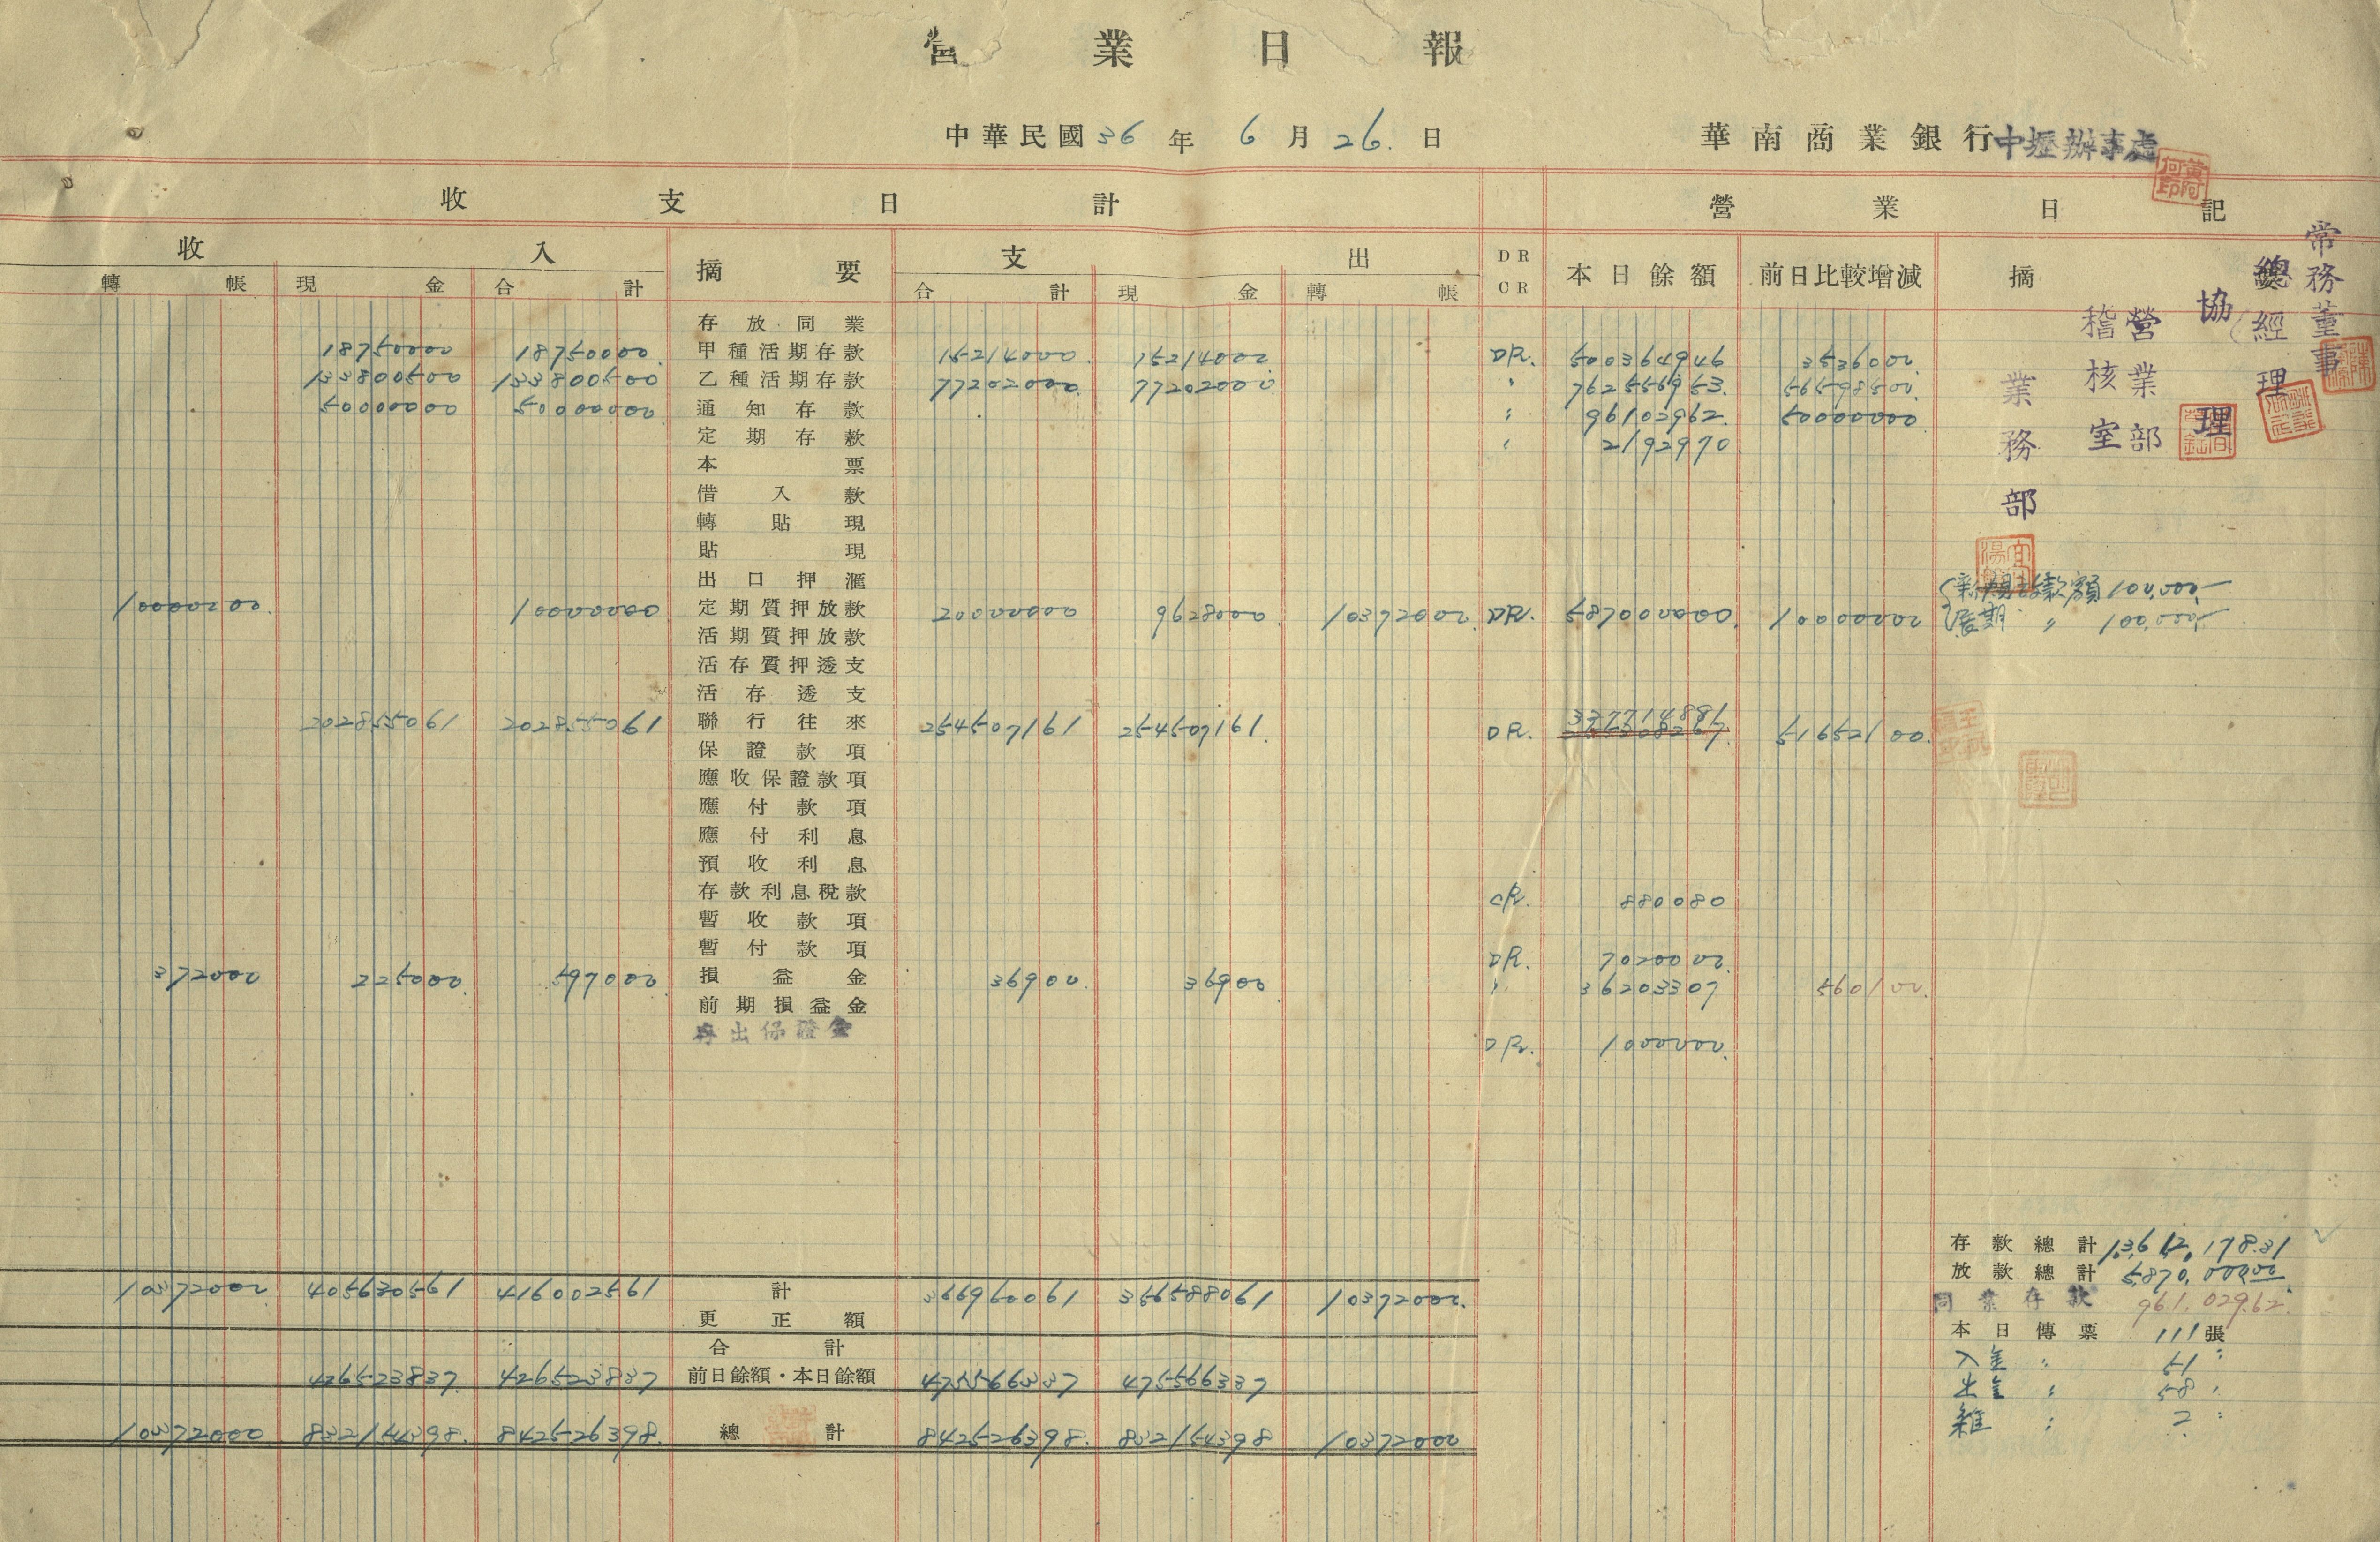 營業日報
中華民國36年6月26.日 華南商業銀行中壢辦事處
收支日計 營業日記
收入 摘要 支出 DR CR 本日餘額 前日比較增減 摘要
轉帳 現金 合計 合計 現金 轉帳
常務董事
總經理
協理
營業部
稽核室
業務部
存放同業
18750000 18750000 甲種活期存款 15214000 15214000 DR. 500364946 3536000
133800500 133800500 乙種活期存款 77202000 77202000 〃 762556953 56598500
50000000 50000000 通知存款 〃 96102962 50000000
定期存款 〃 2192970
本票
借入款
轉貼現
貼現
出口押滙
10000000 10000000 定期質押放款 20000000 9628000 10372000 DR. 587000000 10000000
放款額 100,000
展期 〃 100,000
活期質押放款
活存質押透支
活存透支
202855061 202855061 聯行往來 254507161 254507161 DR. 51652100
保證款項
應收保證款項
應付款項
應付利息
預收利息
存款利息稅款 CR. 880080
暫收款項
暫付款項 DR. 7020000
372000 225000 597000 損益金 36900 36900 〃 36203307 560100
前期損益金
存出保證金 DR. 1000000
存款總計 13,612,178.31
放款總計 5,870,000.00
同業存款 961,029.62
本日傳票 111張
入金 〃 51 〃
出金 〃 58 〃
雜 〃 2 〃
10372000 405630561 416002561 計 366960061 356588061 10372000
更正額
合計
426523837 426523837 前日餘額・本日餘額 475566337 475566337
10372000 832154398 842526398 總計 842526398 832154398 10372000